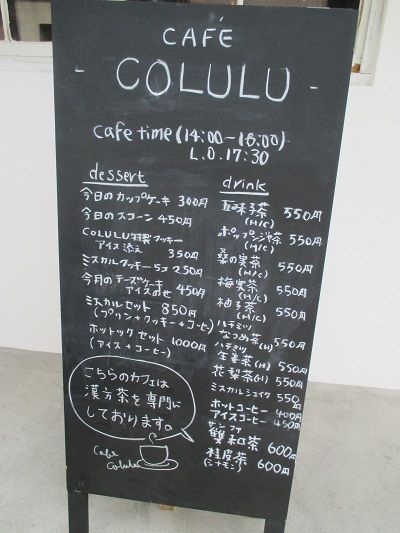 CAFÉ
- COLULU -
cafe time (14:00-18:00)
L.O. 17:30
dessert
今日のカップケーキ 300円
今日のスコーン 450円
COLULU特製クッキー
アイス添え 350円
ミスカルクッキー 5コ 250円
今月のチーズケーキ
アイスのせ 450円
ミスカルセット 850円
(プリン+クッキー+コーヒー)
ホットックセット 1000円
(アイス+コーヒー)
こちらのカフェは
漢方茶を専門に
しております。
Cafe
Colulu
drink
五味子茶 550円
(H/C)
ポップンジャ茶 550円
(H/C)
桑の実茶 550円
(H/C)
梅実茶 550円
(H/C)
柚子茶 550円
(H/C)
ハチミツ
なつめ茶(H) 550円
ハチミツ
生姜茶(H) 550円
花梨茶(H) 550円
ミスカルシェイク 550円
ホットコーヒー 400円
アイスコーヒー 450円
サンファ
雙和茶 600円
桂皮茶 600円
(シナモン)